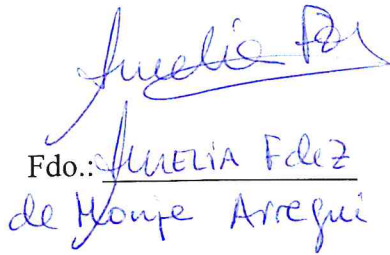 Amelia Fdz
Fdo.: AMELIA Fdez
de Monje Arregui